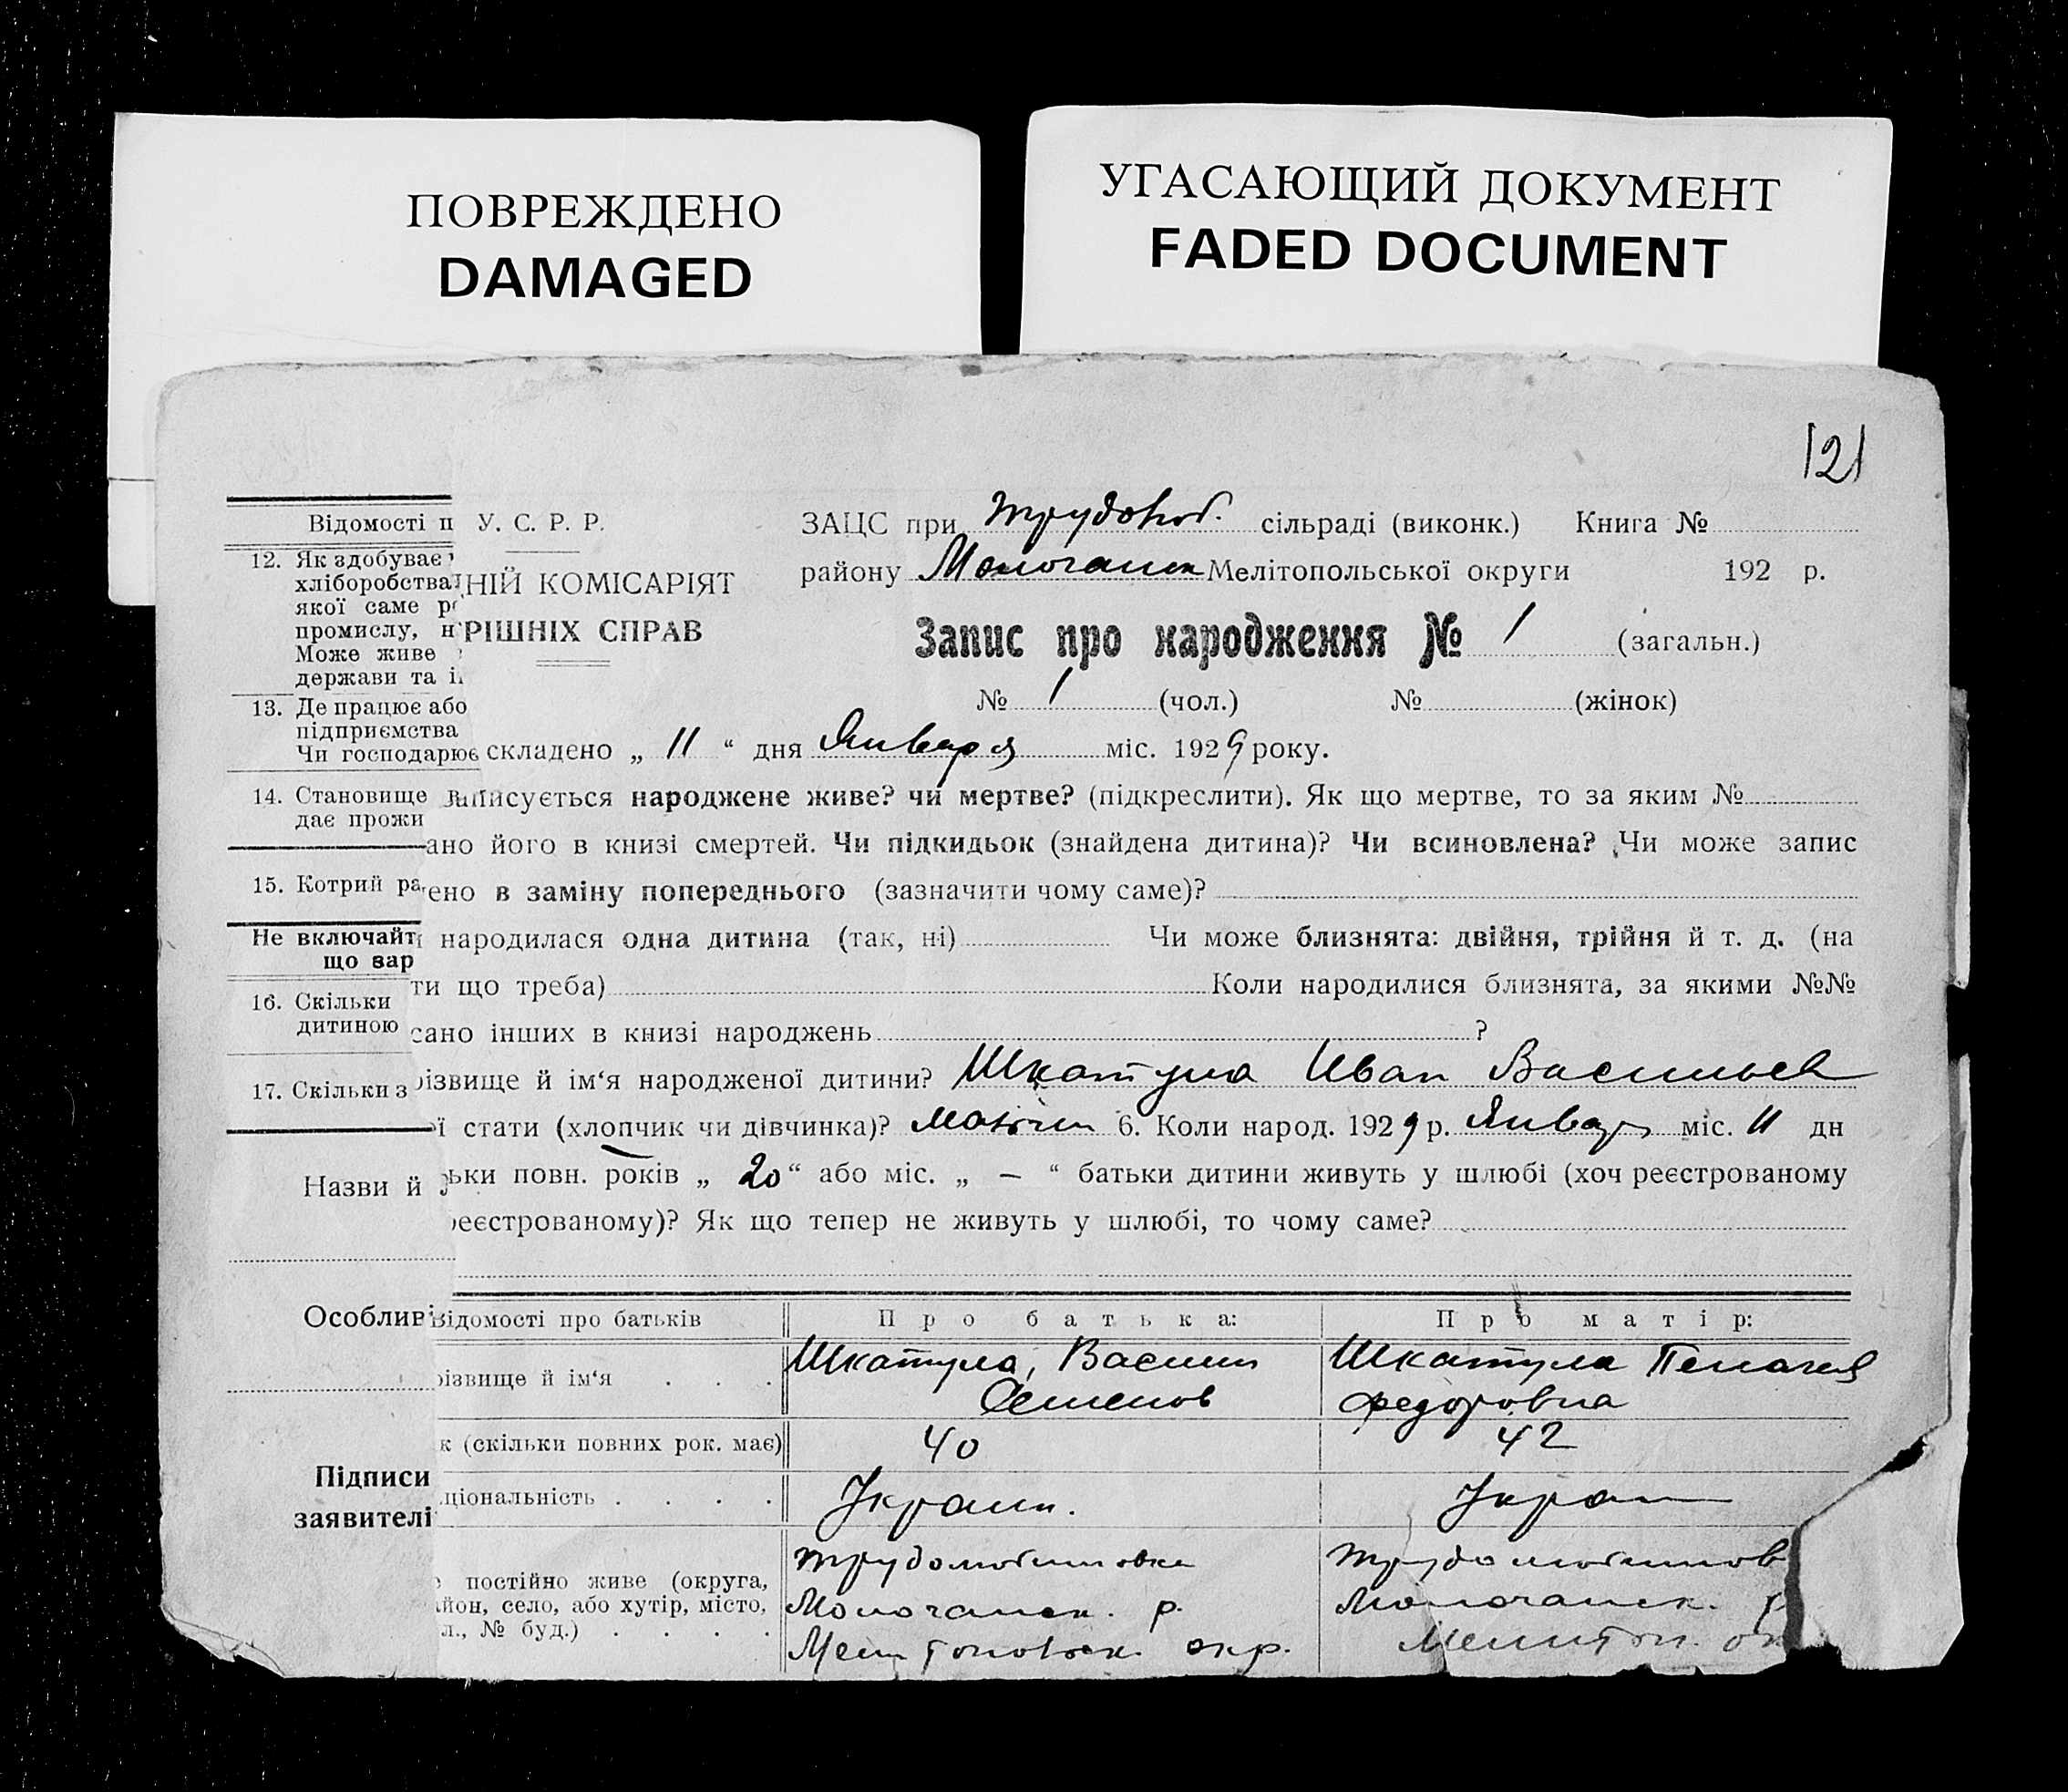 ПОВРЕЖДЕНО
DAMAGED
УГАСАЮЩИЙ ДОКУМЕНТ
FADED DOCUMENT
121
Відомості п
12. Як здобуває
хліборобства
якої саме р
промислу, н
Може живе
держави та і
13. Де працює або
підприємства
Чи господарює
14. Становище
дає прожи
15. Котрий ра
Не включайт
що вар
16. Скільки
дитиною
17. Скільки з
Назви й
Особливі
Підписи
заявителі
У. С. Р. Р.
НІЙ КОМІСАРІЯТ
РІШНІХ СПРАВ
ЗАЦС при Трудолюб. сільраді (виконк.) Книга №
району Молочанск Мелітопольської округи 192 р.
Запис про народження № 1 (загальн.)
№ 1 (чол.) № (жінок)
складено „ 11 “ дня Января міс. 1929 року.
записується народжене живе? чи мертве? (підкреслити). Як що мертве, то за яким №
ано його в книзі смертей. Чи підкидьок (знайдена дитина)? Чи всиновлена? Чи може запис
ено в заміну попереднього (зазначити чому саме)?
народилася одна дитина (так, ні) Чи може близнята: двійня, трійня й т. д. (на
ти що треба) Коли народилися близнята, за якими №№
сано інших в книзі народжень ?
різвище й ім‘я народженої дитини? Шкатула Иван Васильев
ї стати (хлопчик чи дівчинка)? 6. Коли народ. 1929 р. Январь міс. 11 дн
ьки повн. років „ 20 “ або міс. „ — “ батьки дитини живуть у шлюбі (хоч реєстрованому
реєстрованому)? Як що тепер не живуть у шлюбі, то чому саме?
Відомості про батьків Про батька: Про матір:
різвище й ім‘я . . . Шкатула, Васили Шкатула Пелагея
Семенов Федоровна
к (скільки повних рок. має) 40 42
ціональність . . . . Украин. Украин
постійно живе (округа, Трудолюбимовка Трудолюбимов
йон, село, або хутір, місто, Молочанск. р. Молочанск. р
л., № буд.) . . . . Мелитопольск. окр. Мелитоп. ок